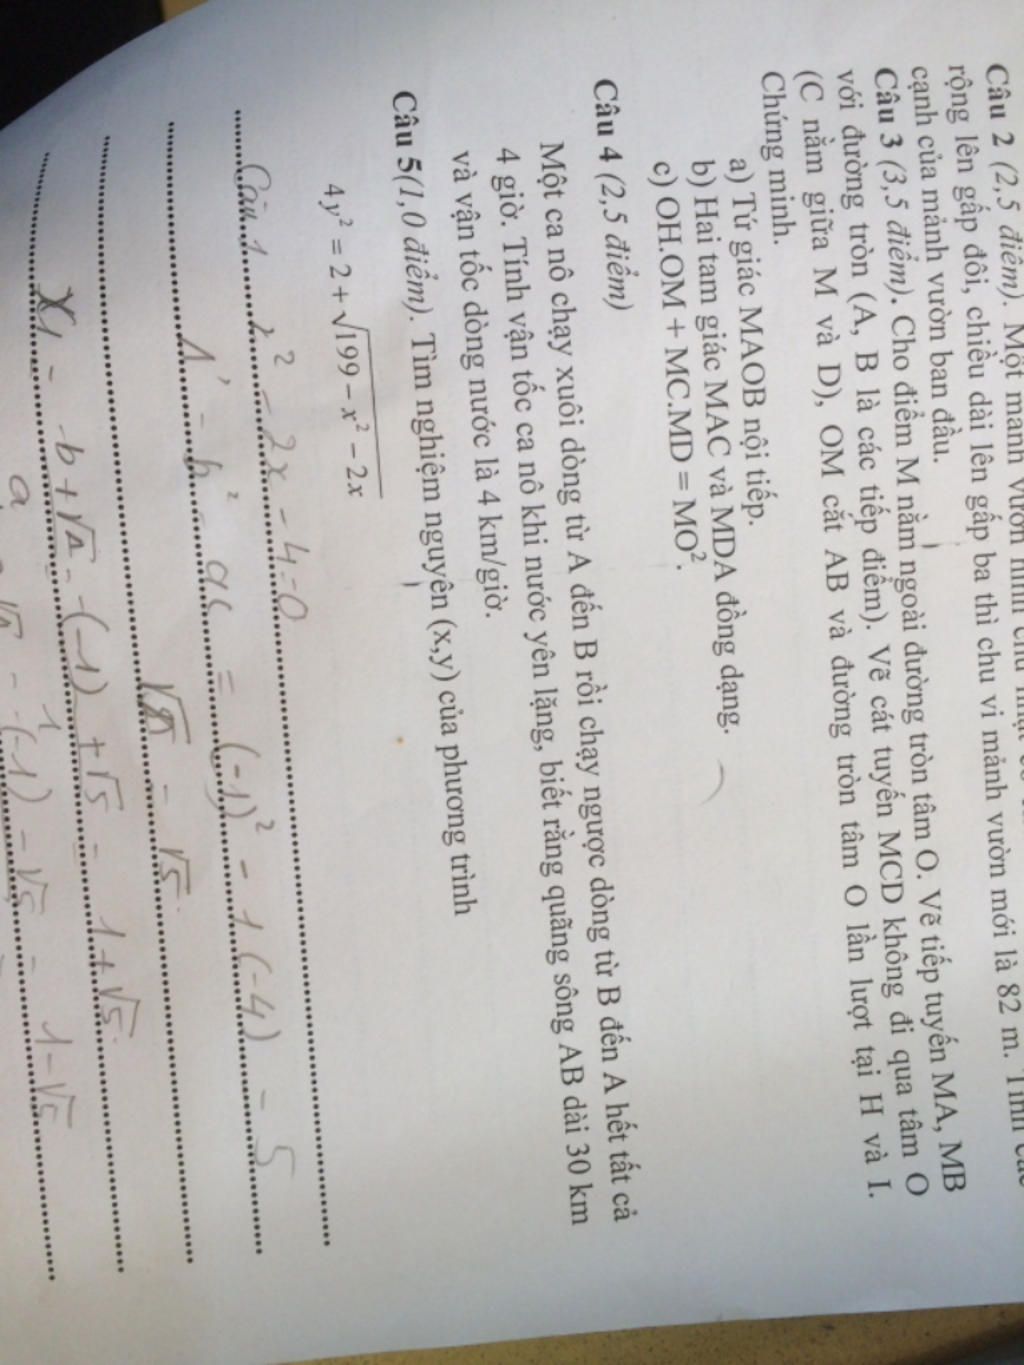 Câu 2 (2,5 điểm). Một mảnh vườn hình chữ nhật
rộng lên gấp đôi, chiều dài lên gấp ba thì chu vi mảnh vườn mới là 82 m. Tính các
cạnh của mảnh vườn ban đầu.
Câu 3 (3,5 điểm). Cho điểm M nằm ngoài đường tròn tâm O. Vẽ tiếp tuyến MA, MB
với đường tròn (A, B là các tiếp điểm). Vẽ cát tuyến MCD không đi qua tâm O
(C nằm giữa M và D), OM cắt AB và đường tròn tâm O lần lượt tại H và I.
Chứng minh.
a) Tứ giác MAOB nội tiếp.
b) Hai tam giác MAC và MDA đồng dạng.
c) OH.OM + MC.MD = MO².
Câu 4 (2,5 điểm)
Một ca nô chạy xuôi dòng từ A đến B rồi chạy ngược dòng từ B đến A hết tất cả
4 giờ. Tính vận tốc ca nô khi nước yên lặng, biết rằng quãng sông AB dài 30 km
và vận tốc dòng nước là 4 km/giờ.
Câu 5(1,0 điểm). Tìm nghiệm nguyên (x,y) của phương trình
4y² = 2 + √(199 – x² – 2x)
Câu 1 x² - 2x - 4 = 0
Δ' - b'² - ac = (-1)² - 1 (-4) - 5
√Δ - √5
X1 - -b + √Δ - -(-1) + √5 - 1 + √5
a 1
√Δ - -(-1) - √5 = 1 - √5